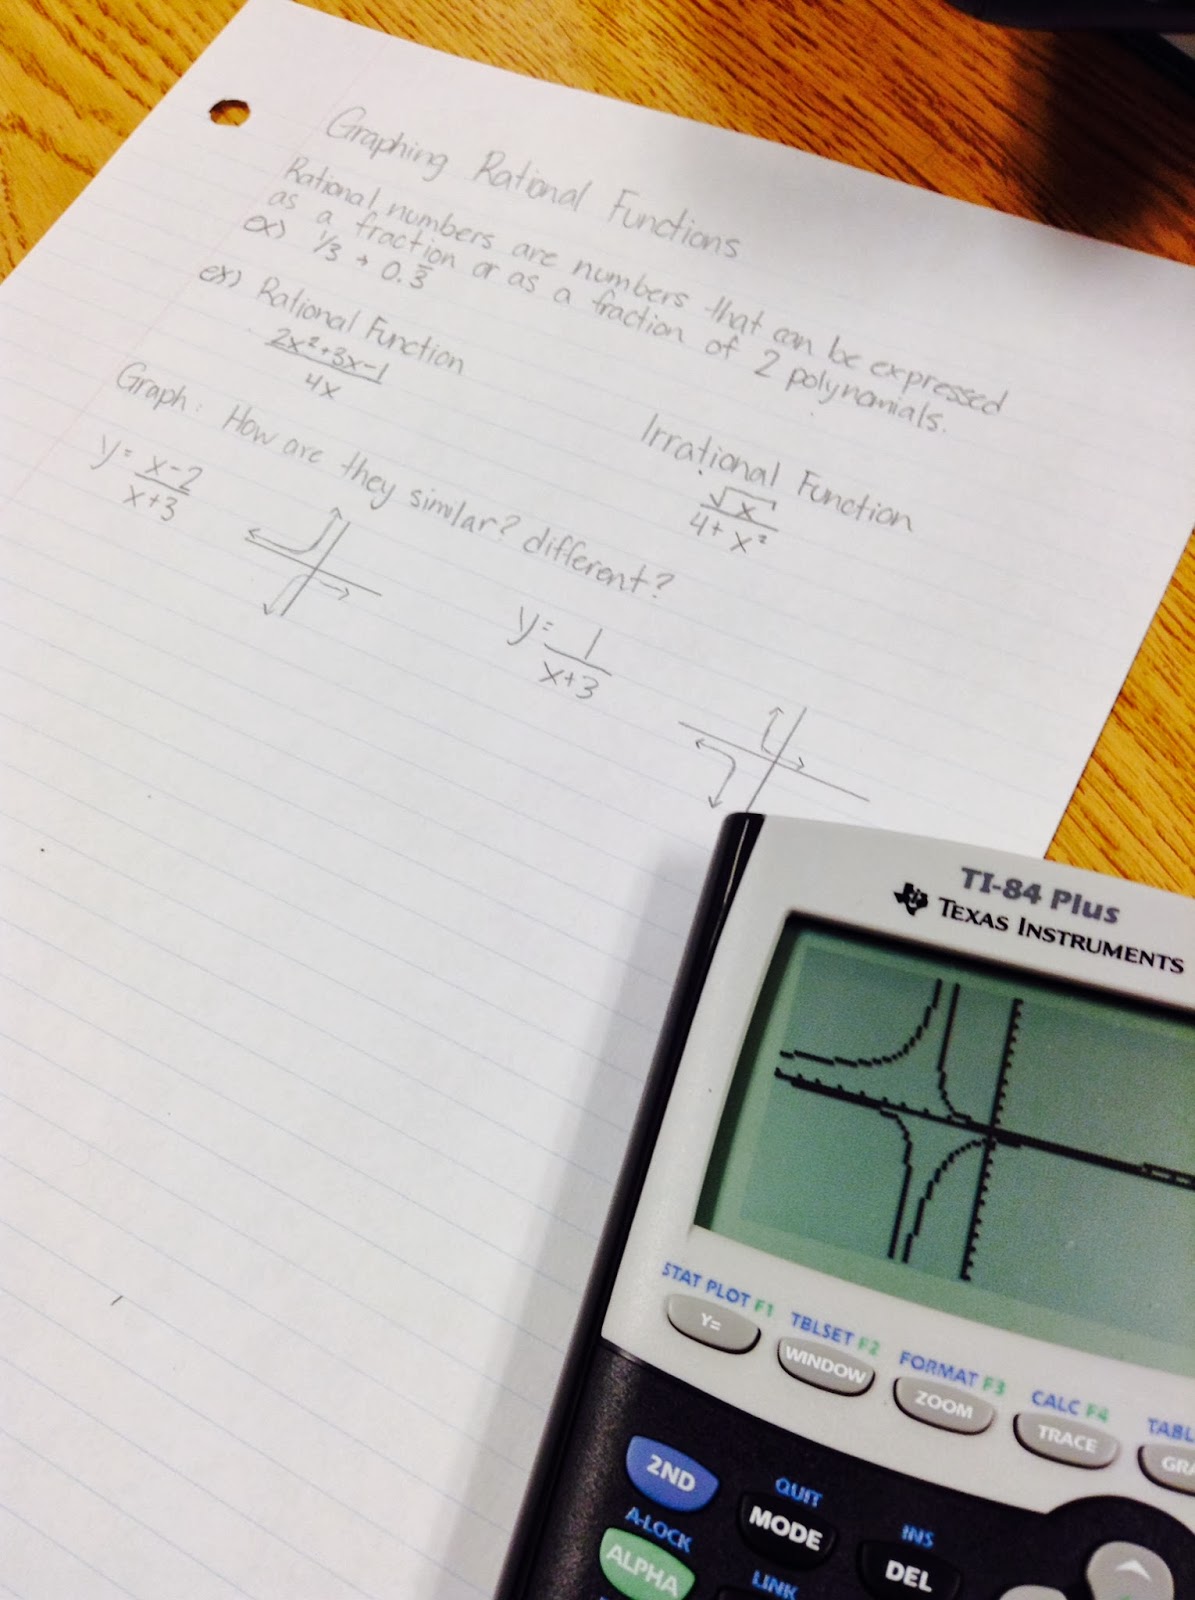 Graphing Rational Functions
Rational numbers are numbers that can be expressed
as a fraction or as a fraction of 2 polynomials.
ex) 1/3 → 0.3̅
ex) Rational Function
2x²+3x-1
4x
Irrational Function
√x
4+x²
Graph: How are they similar? different?
y= x-2
x+3
y= 1
x+3
TI-84 Plus
TEXAS INSTRUMENTS
STAT PLOT F1 TBLSET F2 FORMAT F3 CALC F4 TABL
Y= WINDOW ZOOM TRACE GRA
QUIT INS
2ND MODE DEL
A-LOCK LINK
ALPHA